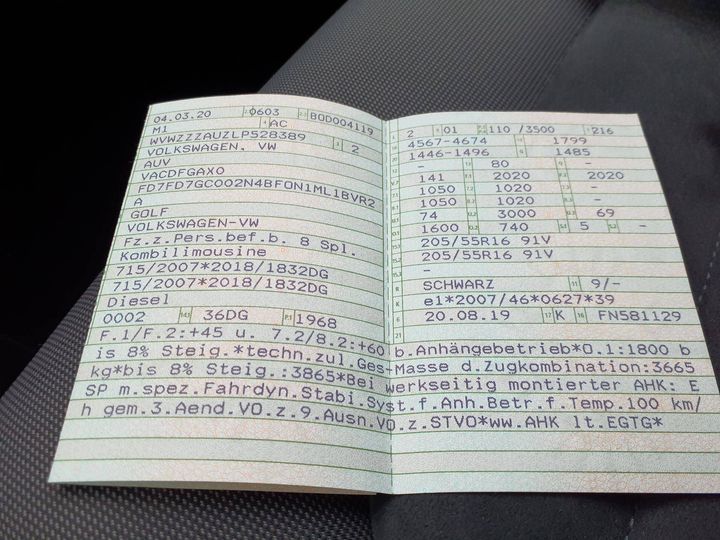 04.03.20 0603 BOD004119
M1 AC
WVWZZZAUZLP528389 2
VOLKSWAGEN, VW
AUV
VACDFGAX0
FD7FD7GC002N4BFON1ML1BVR2
A
GOLF
VOLKSWAGEN-VW
Fz.z.Pers.bef.b. 8 Spl.
Kombilimousine
715/2007*2018/1832DG
715/2007*2018/1832DG
Diesel
0002 14.1 36DG P.1 1968
2 01 110 /3500 216
4567-4674 1799
1446-1496 1485
- 80 -
141 2020 2020
1050 1020 -
1050 1020 -
74 3000 69
1600 740 5 -
205/55R16 91V
205/55R16 91V
-
SCHWARZ 9/-
e1*2007/46*0627*39
20.08.19 K FN581129
F.1/F.2:+45 u. 7.2/8.2:+60 b.Anhängebetrieb*O.1:1800 b
is 8% Steig.*techn.zul.Ges-Masse d.Zugkombination:3665
kg*bis 8% Steig.:3865*Bei werkseitig montierter AHK: E
SP m.spez.Fahrdyn.Stabi.Syst.f.Anh.Betr.f.Temp.100 km/
h gem.3.Aend.VO.z.9.Ausn.VO.z.STVO*ww.AHK lt.EGTG*